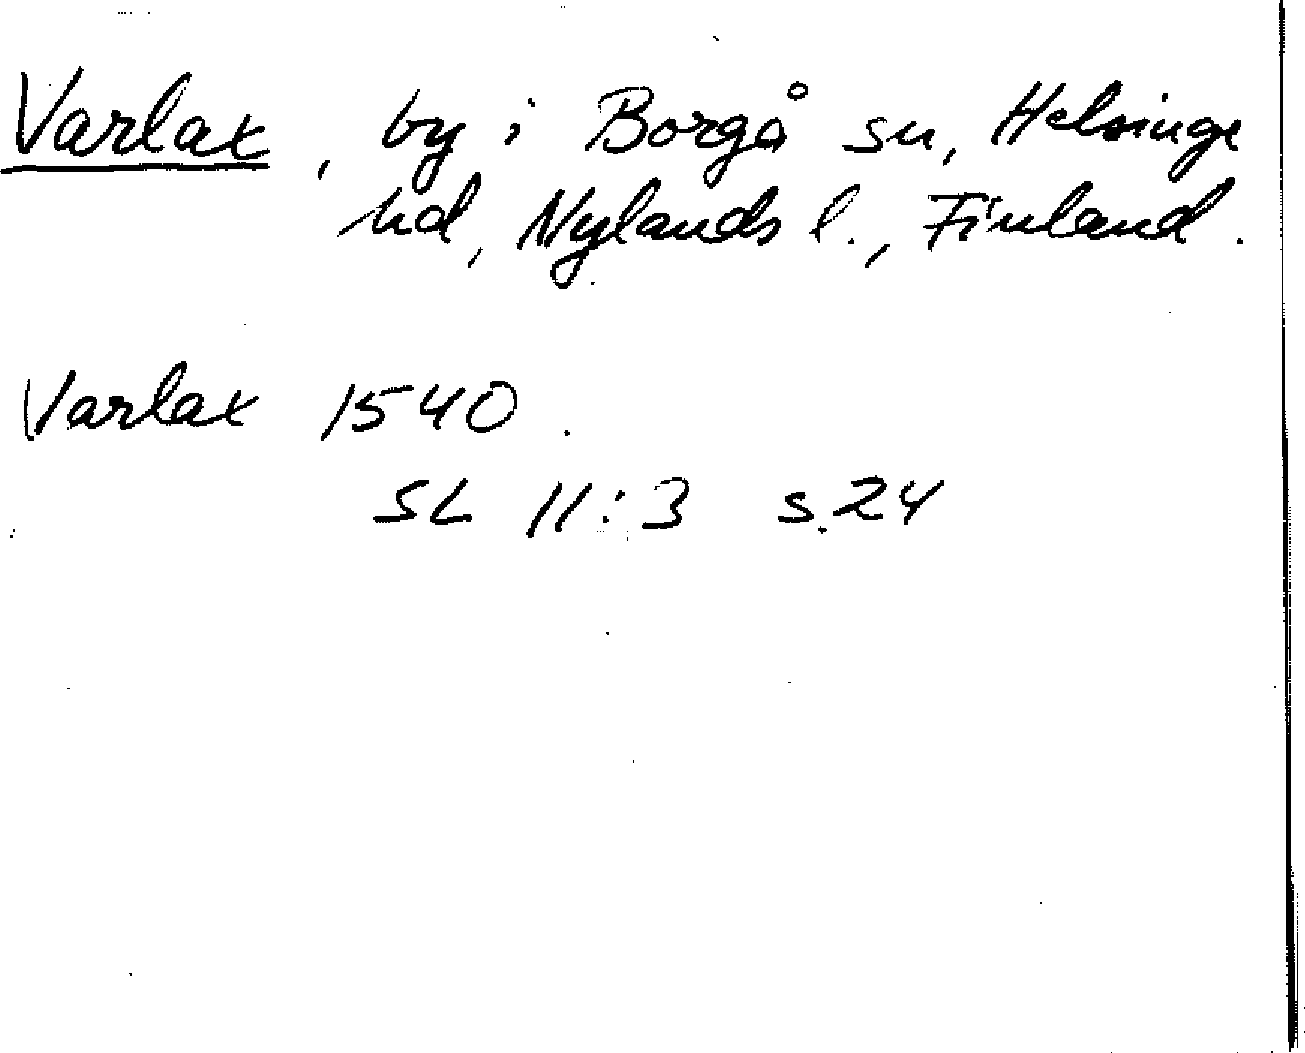 Varlax, by i Borgå sn, Helsinge
hd, Nylands l., Finland.
Varlax 1540.
SL 11:3 s.24